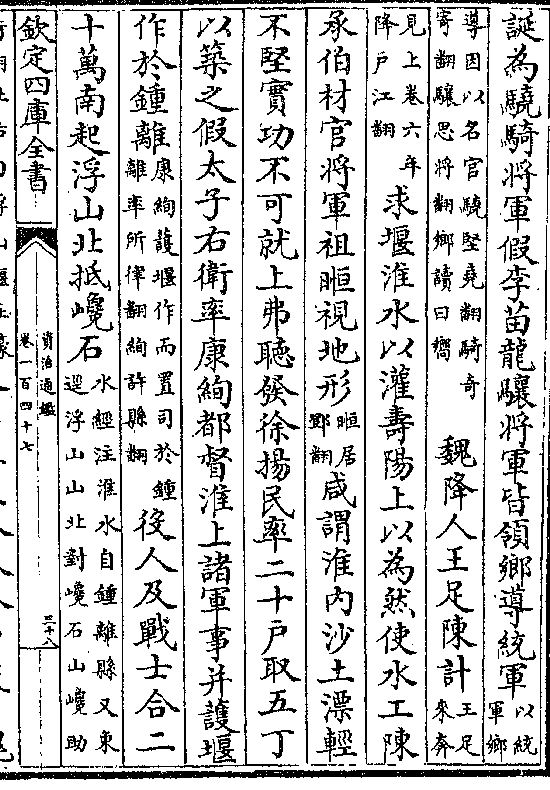 誕為驍騎將軍假李苗龍驤將軍皆領鄉導統軍
以統
軍鄉
導因以名官驍堅堯翻騎奇
寄翻驤思將翻鄉讀曰嚮
魏降人王足陳計
王足
來奔
見上卷六年
降戶江翻
求堰淮水以灌壽陽上以為然使水工陳
承伯材官將軍祖暅視地形
暅居
鄧翻
咸謂淮內沙土漂輕
不堅實功不可就上弗聽發徐揚民率二十戶取五丁
以築之假太子右衛率康絢都督淮上諸軍事并護堰
作於鍾離
康絢護堰作而置司於鍾
離率所律翻絢許縣翻
役人及戰士合二
十萬南起浮山北抵巉石
水經注淮水自鍾離縣又東
逕浮山山北對巉石山巉助
欽定四庫全書
資治通鑑
卷一百四十七
三十八